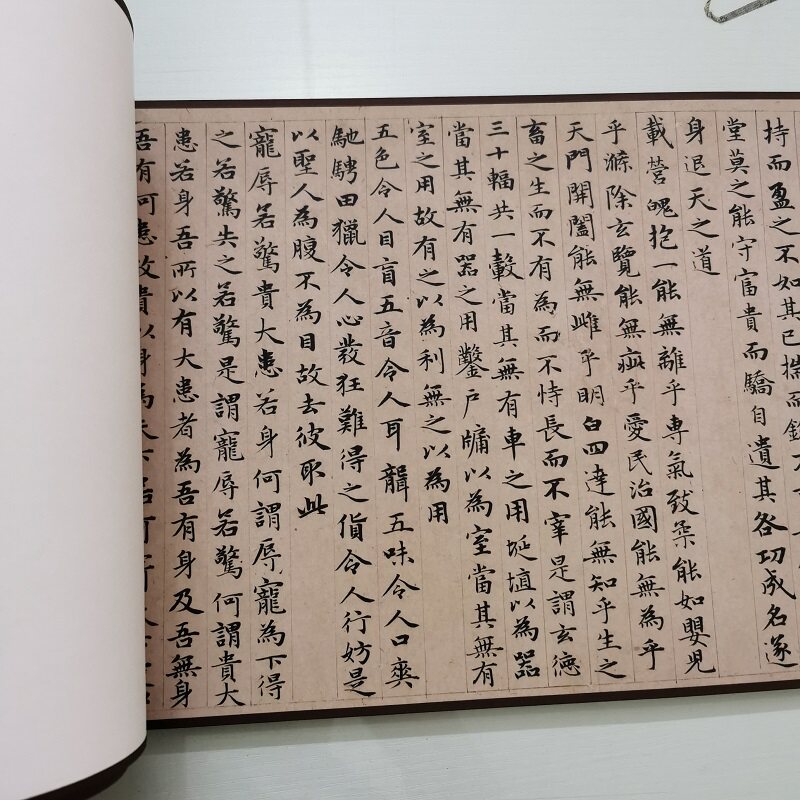 持而盈之不如其已揣而銳不
堂莫之能守富貴而驕自遺其咎功成名遂
身退天之道
載營魄抱一能無離乎專氣致柔能如嬰兒
乎滌除玄覽能無疵乎愛民治國能無為乎
天門開闔能無雌乎明白四達能無知乎生之
畜之生而不有為而不恃長而不宰是謂玄德
三十輻共一轂當其無有車之用埏埴以為器
當其無有器之用鑿戶牖以為室當其無有
室之用故有之以為利無之以為用
五色令人目盲五音令人耳聾五味令人口爽
馳騁田獵令人心發狂難得之貨令人行妨是
以聖人為腹不為目故去彼取此
寵辱若驚貴大患若身何謂辱寵為下得
之若驚失之若驚是謂寵辱若驚何謂貴大
患若身吾所以有大患者為吾有身及吾無身
吾有何患故貴以身為天下若可寄天下